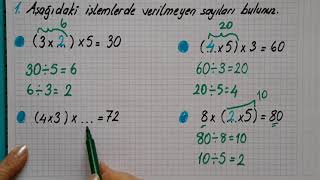 1. Aşağıdaki işlemlerde verilmeyen sayıları bulunuz.
6
(3x2)x5=30
30÷5=6
6÷3=2
20
(4x5)x3=60
60÷3=20
20÷5=4
(4x3)x...=72
10
8x(2x5)=80
80÷8=10
10÷5=2